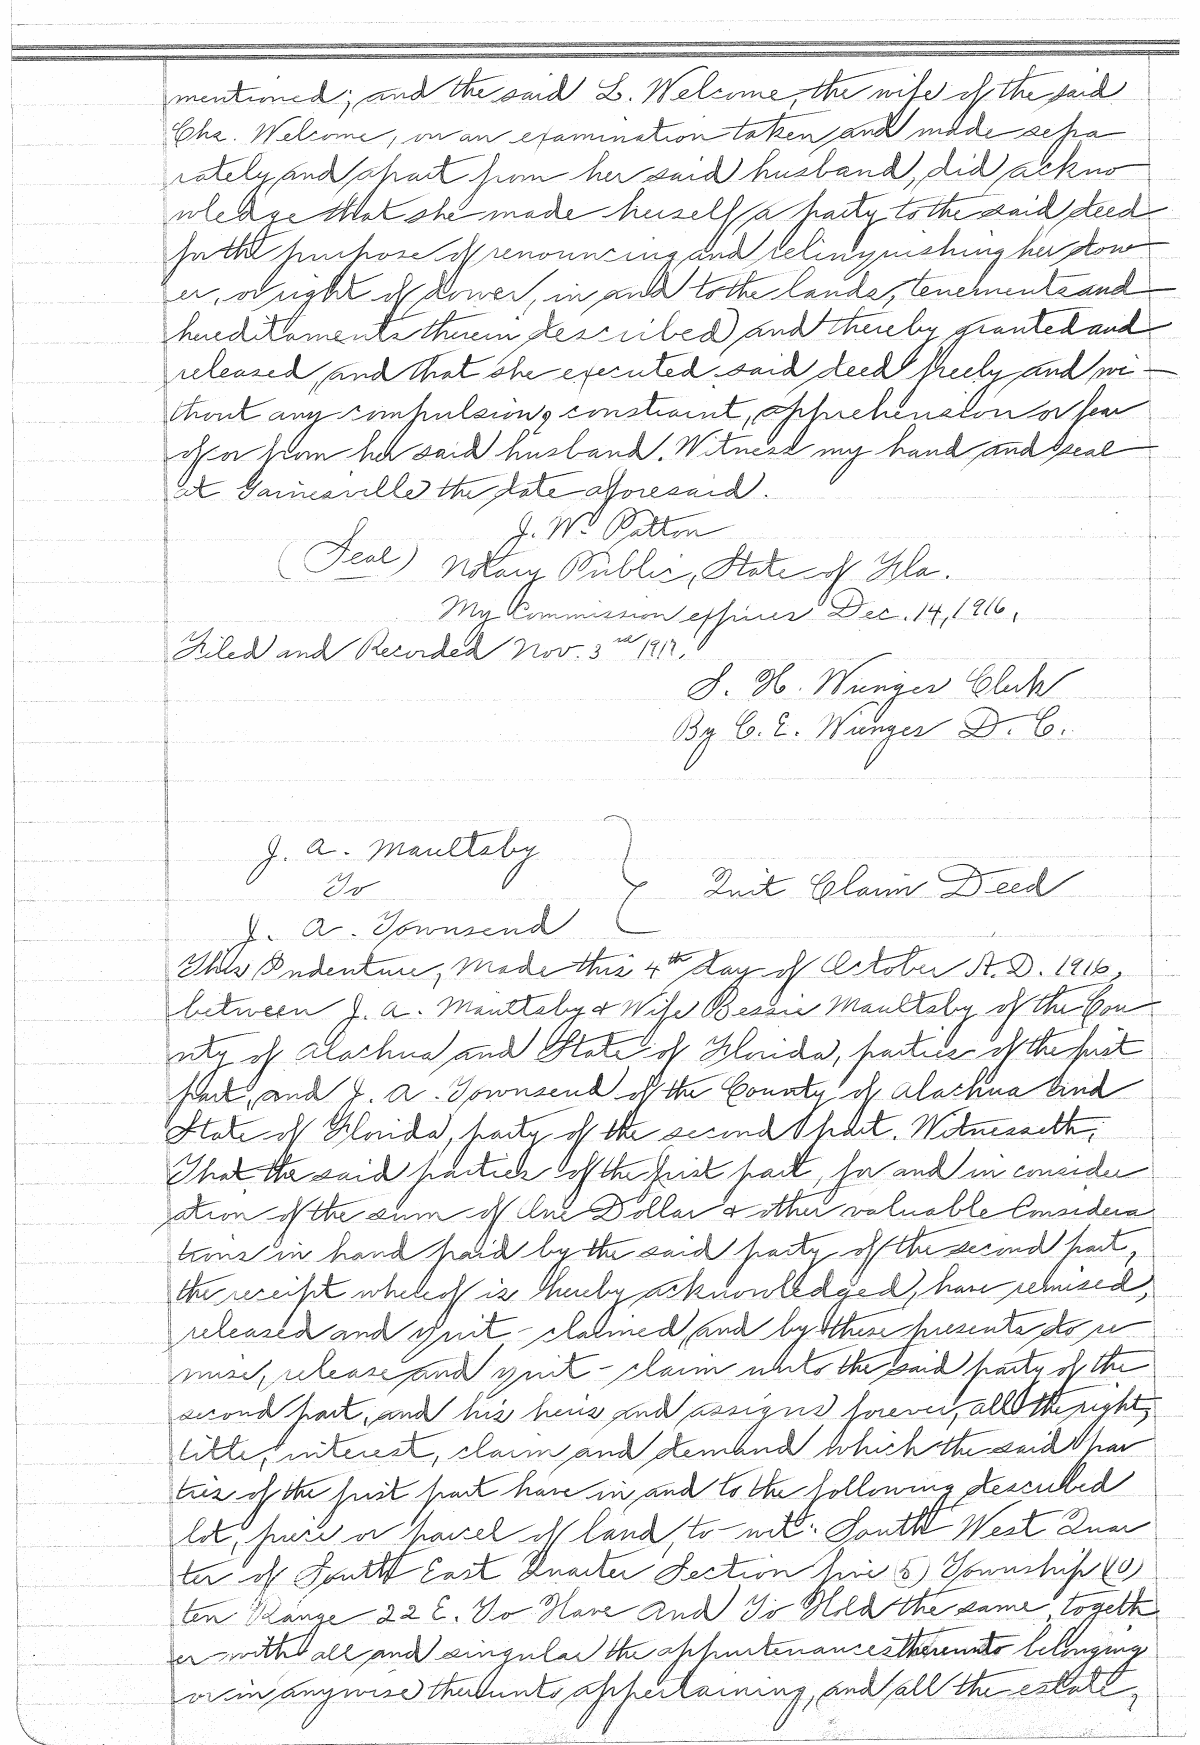 mentioned; and the said L. Welcome, the wife of the said
Chs. Welcome, on an examination taken and made sepa
rately and apart from her said husband, did ackno
wledge that she made herself a party to the said deed
for the purpose of renouncing and relinquishing her dow
er, or right of dower, in and to the lands, tenements and
hereditaments therein described and thereby granted and
released, and that she executed said deed freely and wi-
thout any compulsion, constraint, apprehension or fear
of or from her said husband. Witness my hand and seal
at Gainesville the date aforesaid.
J. W. Patton
(Seal) Notary Public, State of Fla.
My Commission expires Dec. 14, 1916.
Filed and Recorded Nov. 3rd 1917.
S. H. Wienges Clerk
By C. E. Wienges D. C.
J. A. Maultsby
To
Quit Claim Deed
J. A. Townsend
This Indenture, Made this 4th day of October A. D. 1916,
between J. A. Maultsby & Wife Bessie Maultsby of the Cou
nty of Alachua and State of Florida, parties of the first
part, and J. A. Townsend of the County of Alachua and
State of Florida, party of the second part. Witnesseth,
That the said parties of the first part, for and in consider
ation of the sum of One Dollar & other valuable Considera
tions in hand paid by the said party of the second part,
the receipt whereof is hereby acknowledged, have remised,
released and quit-claimed, and by these presents do re
mise, release and quit-claim unto the said party of the
second part, and his heirs and assigns forever, all the right,
title, interest, claim and demand which the said par
ties of the first part have in and to the following described
lot, piece or parcel of land, to-wit: South West Quar
ter of South East Quarter Section five (5) Township (10)
ten Range 22 E. To Have and To Hold the same, togeth
er with all and singular the appurtenances thereunto belonging
or in anywise thereunto appertaining, and all the estate,